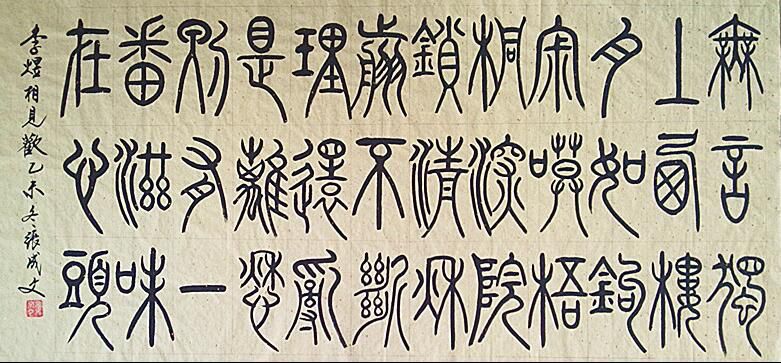 無言獨
上西樓
月如鉤
寂嗼梧
桐深院
鎖清秋
剪不斷
理還亂
是離愁
別有一
番滋味
在心頭
李煜相見歡乙未冬張成文